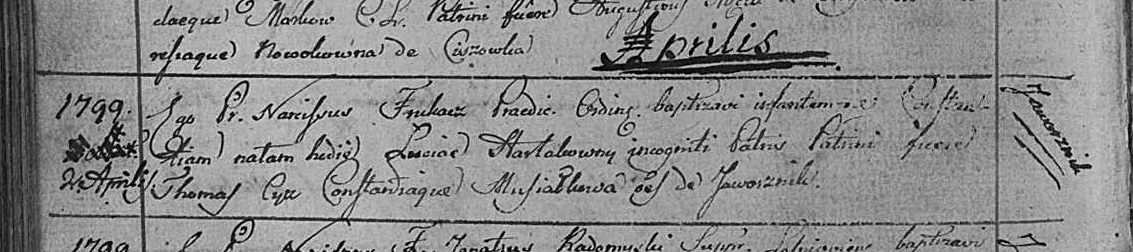 daeque Markow C. L. Patrini fuere Augustinus
resiaque Nowakowna de Ciszowka
Aprilis
1799. Ego Pr. Narcissus Frukacz Praedic. Ordins. baptizavi infantem n-e Constan- Jaworznik
tiam natam hodie Luciae Startakowny incogniti Patris Patrini fuere
2 Aprilis Thomas Cyz Constantiaque Musiałkowa oes de Jaworznik.
1799 Ignatius Radomyski Suppr. baptizavi